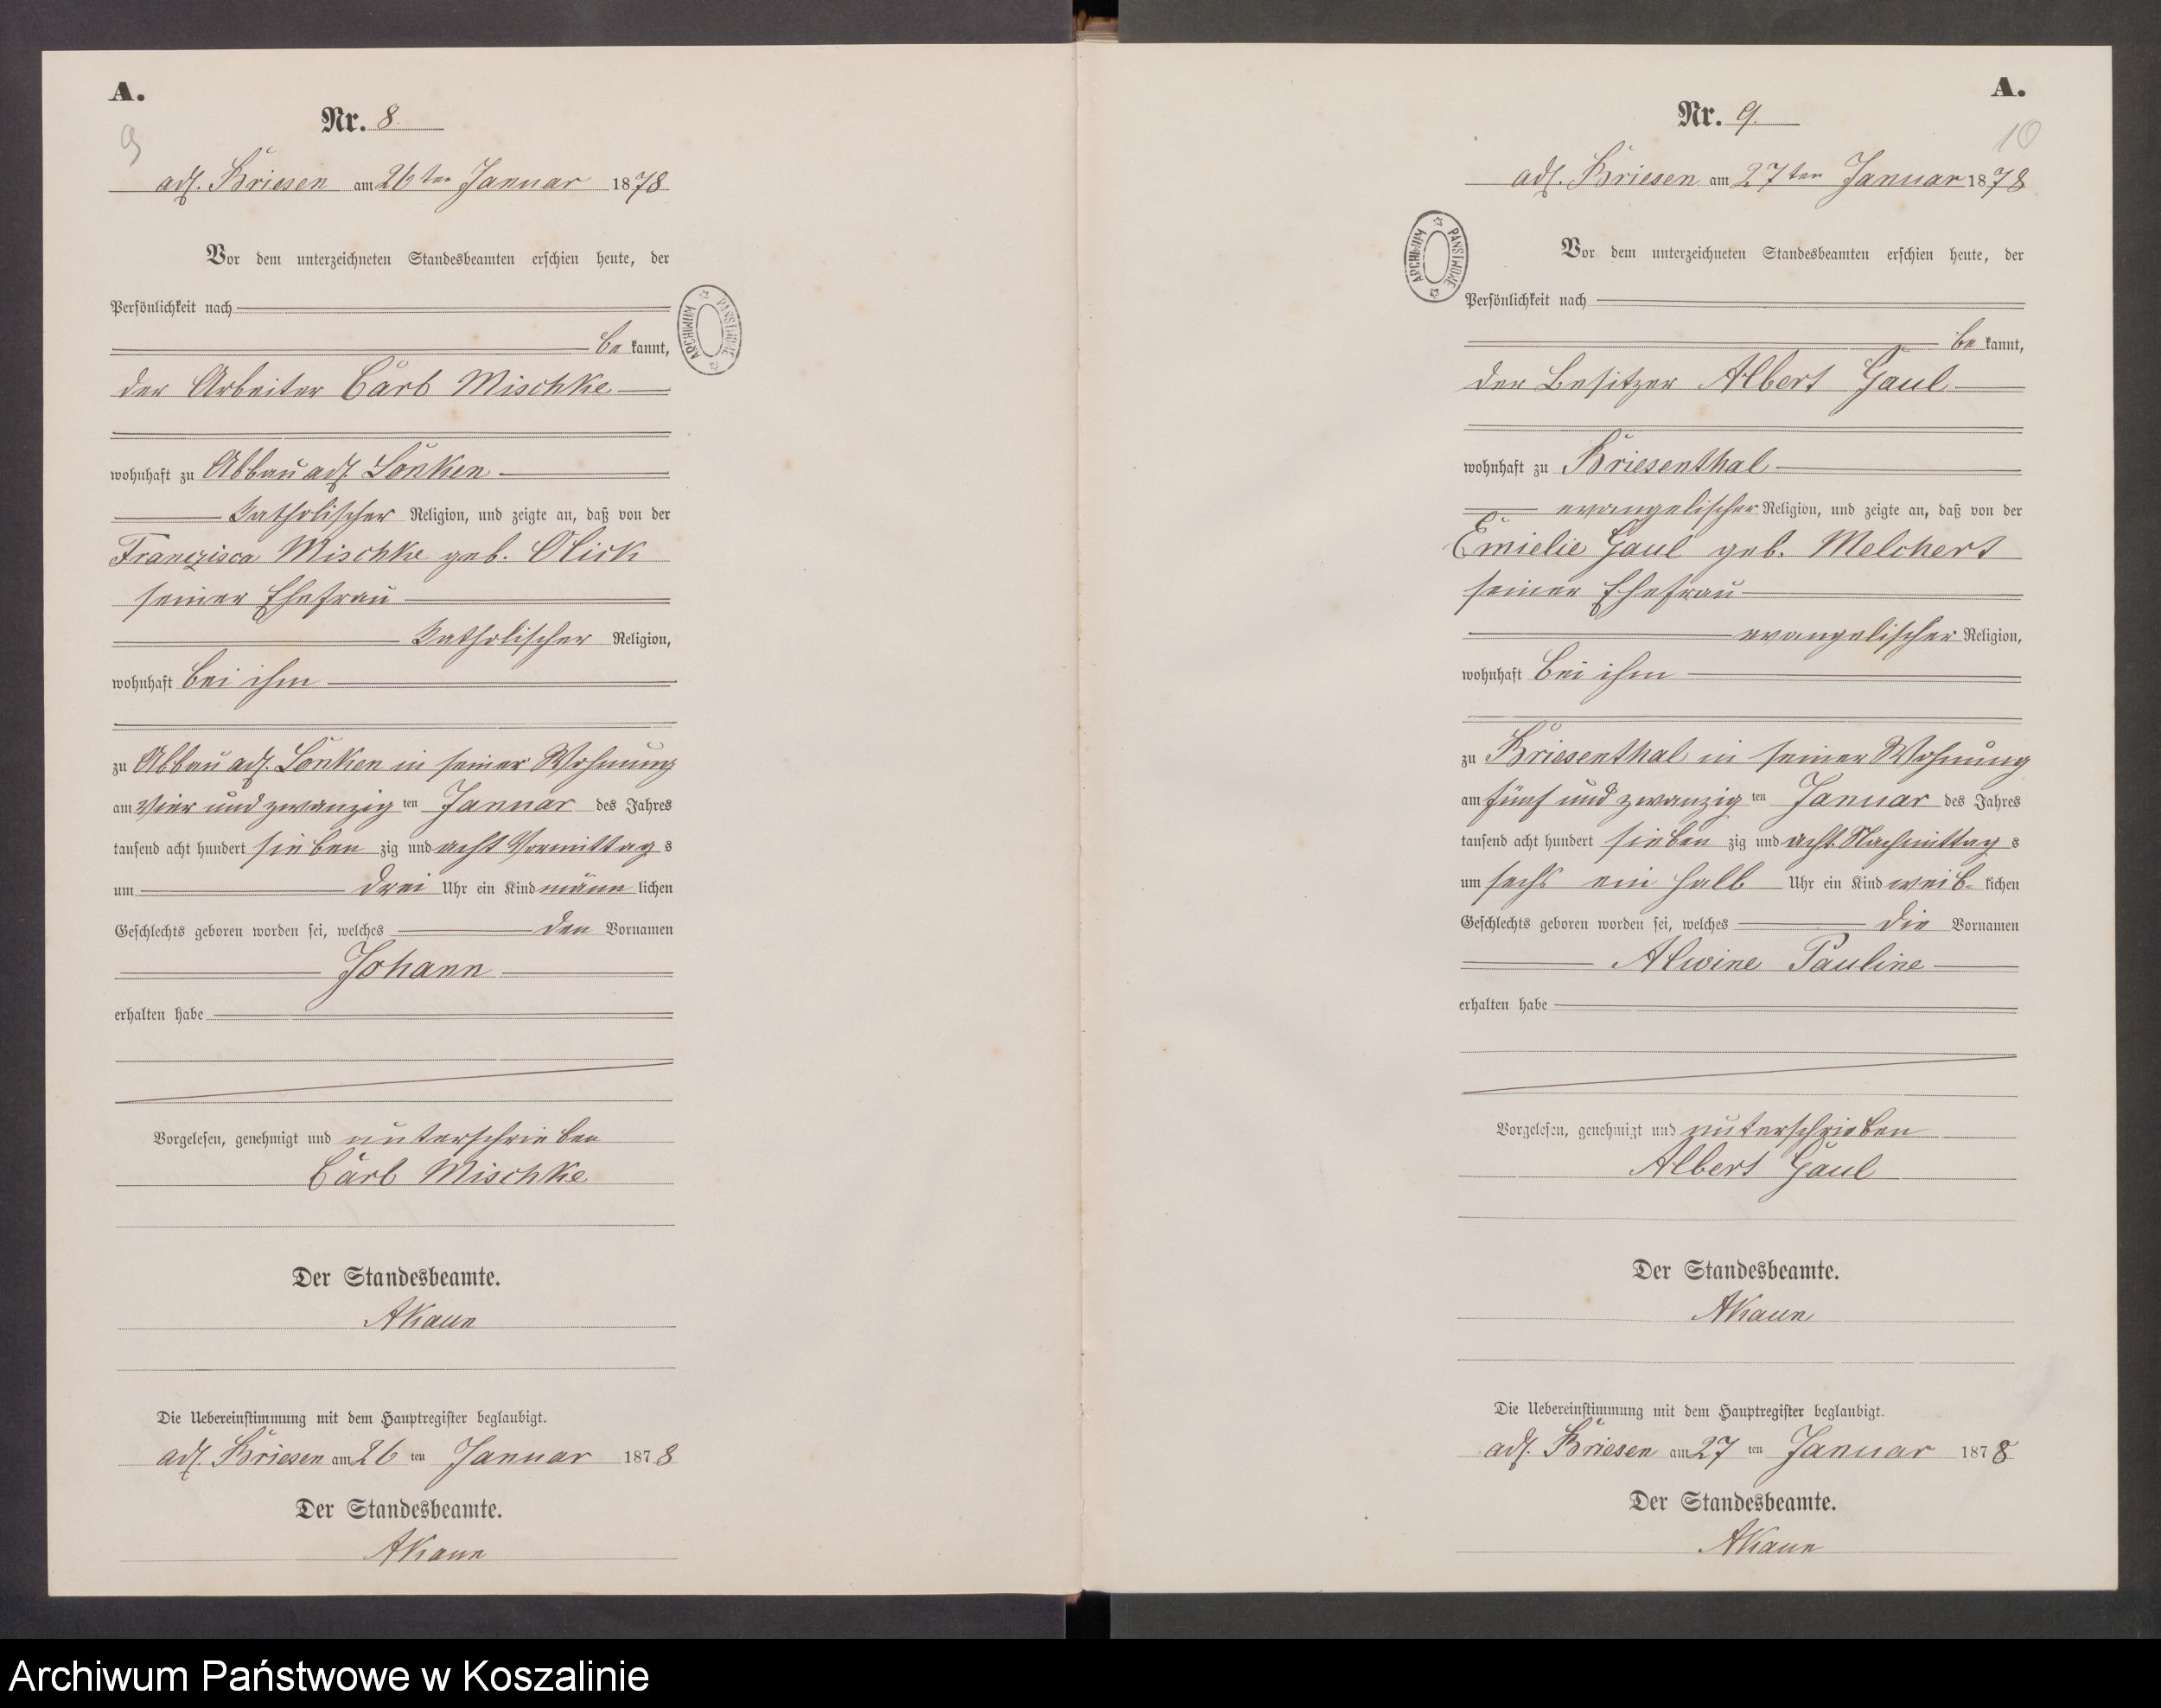 A.
9
Nr. 8.
adl. Briesen am 26ten Januar 1878
Vor dem unterzeichneten Standesbeamten erschien heute, der
Persönlichkeit nach
be kannt,
der Arbeiter Carl Mischke
wohnhaft zu Abbau adl. Lonken
katholischer Religion, und zeigte an, daß von der
Franzisca Mischke geb. Olick
seiner Ehefrau
katholischer Religion,
wohnhaft bei ihm
zu Abbau adl. Lonken in seiner Wohnung
am vier und zwanzig ten Januar des Jahres
tausend acht hundert sieben zig und acht Vormittag s
um drei Uhr ein Kind männ lichen
Geschlechts geboren worden sei, welches den Vornamen
Johann
erhalten habe
Vorgelesen, genehmigt und unterschrieben
Carl Mischke
Der Standesbeamte.
AKaun
Die Uebereinstimmung mit dem Hauptregister beglaubigt.
adl. Briesen am 26 ten Januar 1878
Der Standesbeamte.
AKaun
ARCHIWUM PAŃSTWOWE
A.
10
Nr. 9.
adl. Briesen am 27ten Januar 1878
Vor dem unterzeichneten Standesbeamten erschien heute, der
Persönlichkeit nach
be kannt,
der Besitzer Albert Gaul
wohnhaft zu Briesenthal
evangelischer Religion, und zeigte an, daß von der
Emielie Gaul geb. Melchert
seiner Ehefrau
evangelischer Religion,
wohnhaft bei ihm
zu Briesenthal in seiner Wohnung
am fünf und zwanzig ten Januar des Jahres
tausend acht hundert sieben zig und acht Nachmittag s
um sechs ein halb Uhr ein Kind weib- lichen
Geschlechts geboren worden sei, welches die Vornamen
Alwine Pauline
erhalten habe
Vorgelesen, genehmigt und unterschrieben
Albert Gaul
Der Standesbeamte.
AKaun
Die Uebereinstimmung mit dem Hauptregister beglaubigt.
adl. Briesen am 27 ten Januar 1878
Der Standesbeamte.
AKaun
ARCHIWUM PAŃSTWOWE
Archiwum Państwowe w Koszalinie